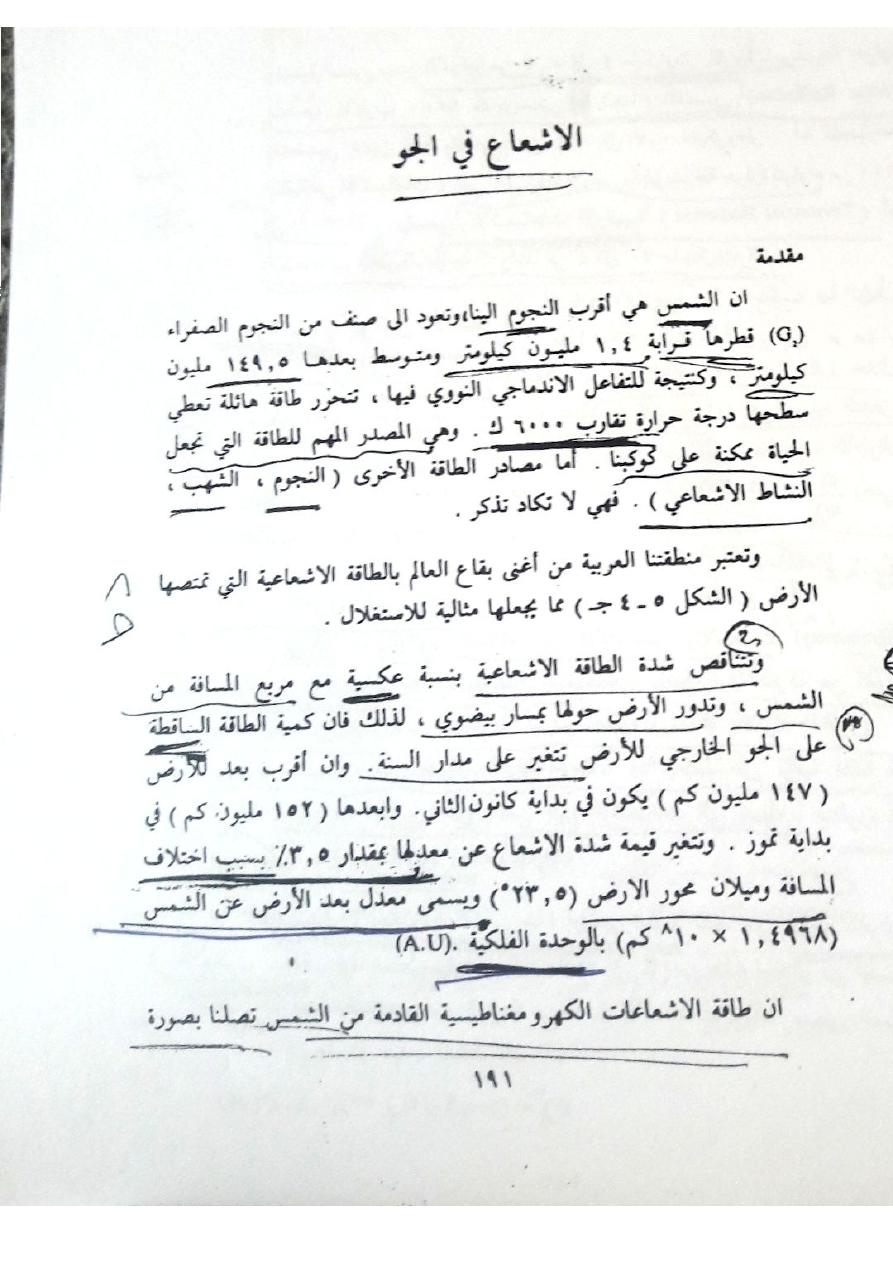 الاشعاع في الجو
مقدمة
ان الشمس هي أقرب النجوم الينا،وتعود الى صنف من النجوم الصفراء
(G₂) قطرها قرابة ١,٤ مليون كيلومتر ومتوسط بعدها ١٤٩,٥ مليون
كيلومتر ، وكنتيجة للتفاعل الاندماجي النووي فيها ، تتحرر طاقة هائلة تعطي
سطحها درجة حرارة تقارب ٦٠٠٠ ك . وهي المصدر المهم للطاقة التي تجعل
الحياة ممكنة على كوكبنا . أما مصادر الطاقة الأخرى ( النجوم ، الشهب ،
النشاط الاشعاعي ) . فهي لا تكاد تذكر .
وتعتبر منطقتنا العربية من أغنى بقاع العالم بالطاقة الاشعاعية التي تمتصها
الأرض ( الشكل ٥ ـ ٤ جـ ) مما يجعلها مثالية للاستغلال .
وتتناقص شدة الطاقة الاشعاعية بنسبة عكسية مع مربع المسافة من
الشمس ، وتدور الأرض حولها بمسار بيضوي ، لذلك فان كمية الطاقة الساقطة
على الجو الخارجي للأرض تتغير على مدار السنة . وان أقرب بعد للأرض
( ١٤٧ مليون كم ) يكون في بداية كانون الثاني . وابعدها ( ١٥٢ مليون كم ) في
بداية تموز . وتتغير قيمة شدة الاشعاع عن معدلها بمقدار ٣,٥٪ بسبب اختلاف
المسافة وميلان محور الارض (٢٣,٥°) ويسمى معدل بعد الأرض عن الشمس
(١,٤٩٦٨ × ١٠^٨ كم) بالوحدة الفلكية .(A.U)
ان طاقة الاشعاعات الكهرومغناطيسية القادمة من الشمس تصلنا بصورة
١٩١